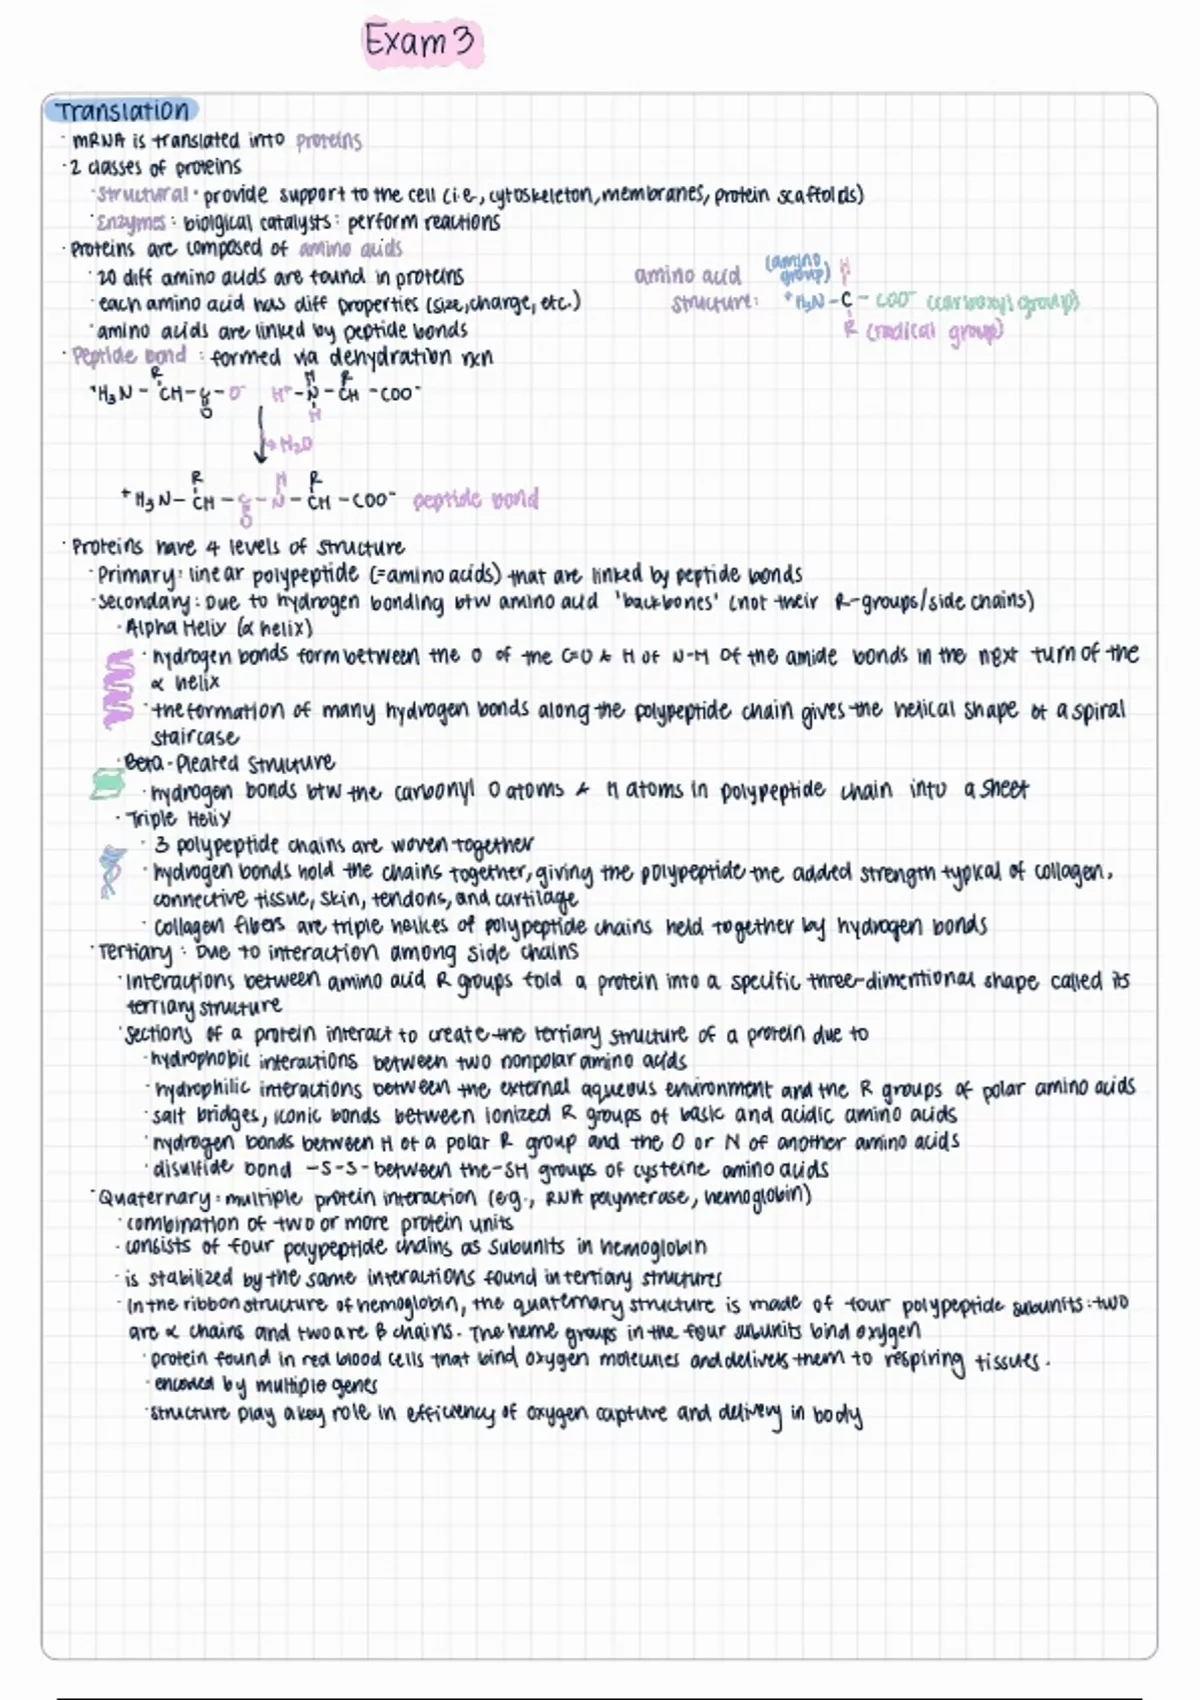 Exam 3
Translation
· mRNA is translated into proteins
· 2 classes of proteins
· Structural · provide support to the cell (i.e., cytoskeleton, membranes, protein scaffolds)
· Enzymes : biolgical catalysts : perform reactions
· Proteins are composed of amino acids
· 20 diff amino acids are found in proteins
· each amino acid has diff properties (size, charge, etc.)
· amino acids are linked by peptide bonds
amino acid structure:
(amino group) H
⁺H₃N - C - COO⁻ (carboxyl group)
R (radical group)
· Peptide bond : formed via dehydration rxn
R H R
⁺H₃N - CH - C - O⁻ H⁺ - N - CH - COO⁻
O H
→ H₂O
R H R
⁺H₃N - CH - C - N - CH - COO⁻ peptide bond
O
· Proteins have 4 levels of structure
· Primary: linear polypeptide (=amino acids) that are linked by peptide bonds
· Secondary: Due to hydrogen bonding btw amino acid 'backbones' (not their R-groups/side chains)
· Alpha Helix (α helix)
· hydrogen bonds form between the O of the C=O & H of N-H of the amide bonds in the next turn of the
α helix
· the formation of many hydrogen bonds along the polypeptide chain gives the helical shape of a spiral
staircase
· Beta-Pleated Structure
· hydrogen bonds btw the carbonyl O atoms & H atoms in polypeptide chain into a sheet
· Triple Helix
· 3 polypeptide chains are woven together
· hydrogen bonds hold the chains together, giving the polypeptide the added strength typical of collagen,
connective tissue, skin, tendons, and cartilage
· Collagen fibers are triple helices of polypeptide chains held together by hydrogen bonds
· Tertiary : Due to interaction among side chains
· Interactions between amino acid R groups fold a protein into a specific three-dimentional shape called its
tertiary structure
· Sections of a protein interact to create the tertiary structure of a protein due to
· hydrophobic interactions between two nonpolar amino acids
· hydrophilic interactions between the external aqueous environment and the R groups of polar amino acids
· salt bridges, iconic bonds between ionized R groups of basic and acidic amino acids
· hydrogen bonds between H of a polar R group and the O or N of another amino acids
· disulfide bond -S-S- between the -SH groups of cysteine amino acids
· Quaternary : multiple protein interaction (eg., RNA polymerase, hemoglobin)
· combination of two or more protein units
· consists of four polypeptide chains as subunits in hemoglobin
· is stabilized by the same interactions found in tertiary structures
· In the ribbon structure of hemoglobin, the quaternary structure is made of four polypeptide subunits : two
are α chains and two are β chains. The heme groups in the four subunits bind oxygen
· protein found in red blood cells that bind oxygen molecules and delivers them to respiring tissues.
· encoded by multiple genes
· structure play a key role in efficiency of oxygen capture and delivery in body